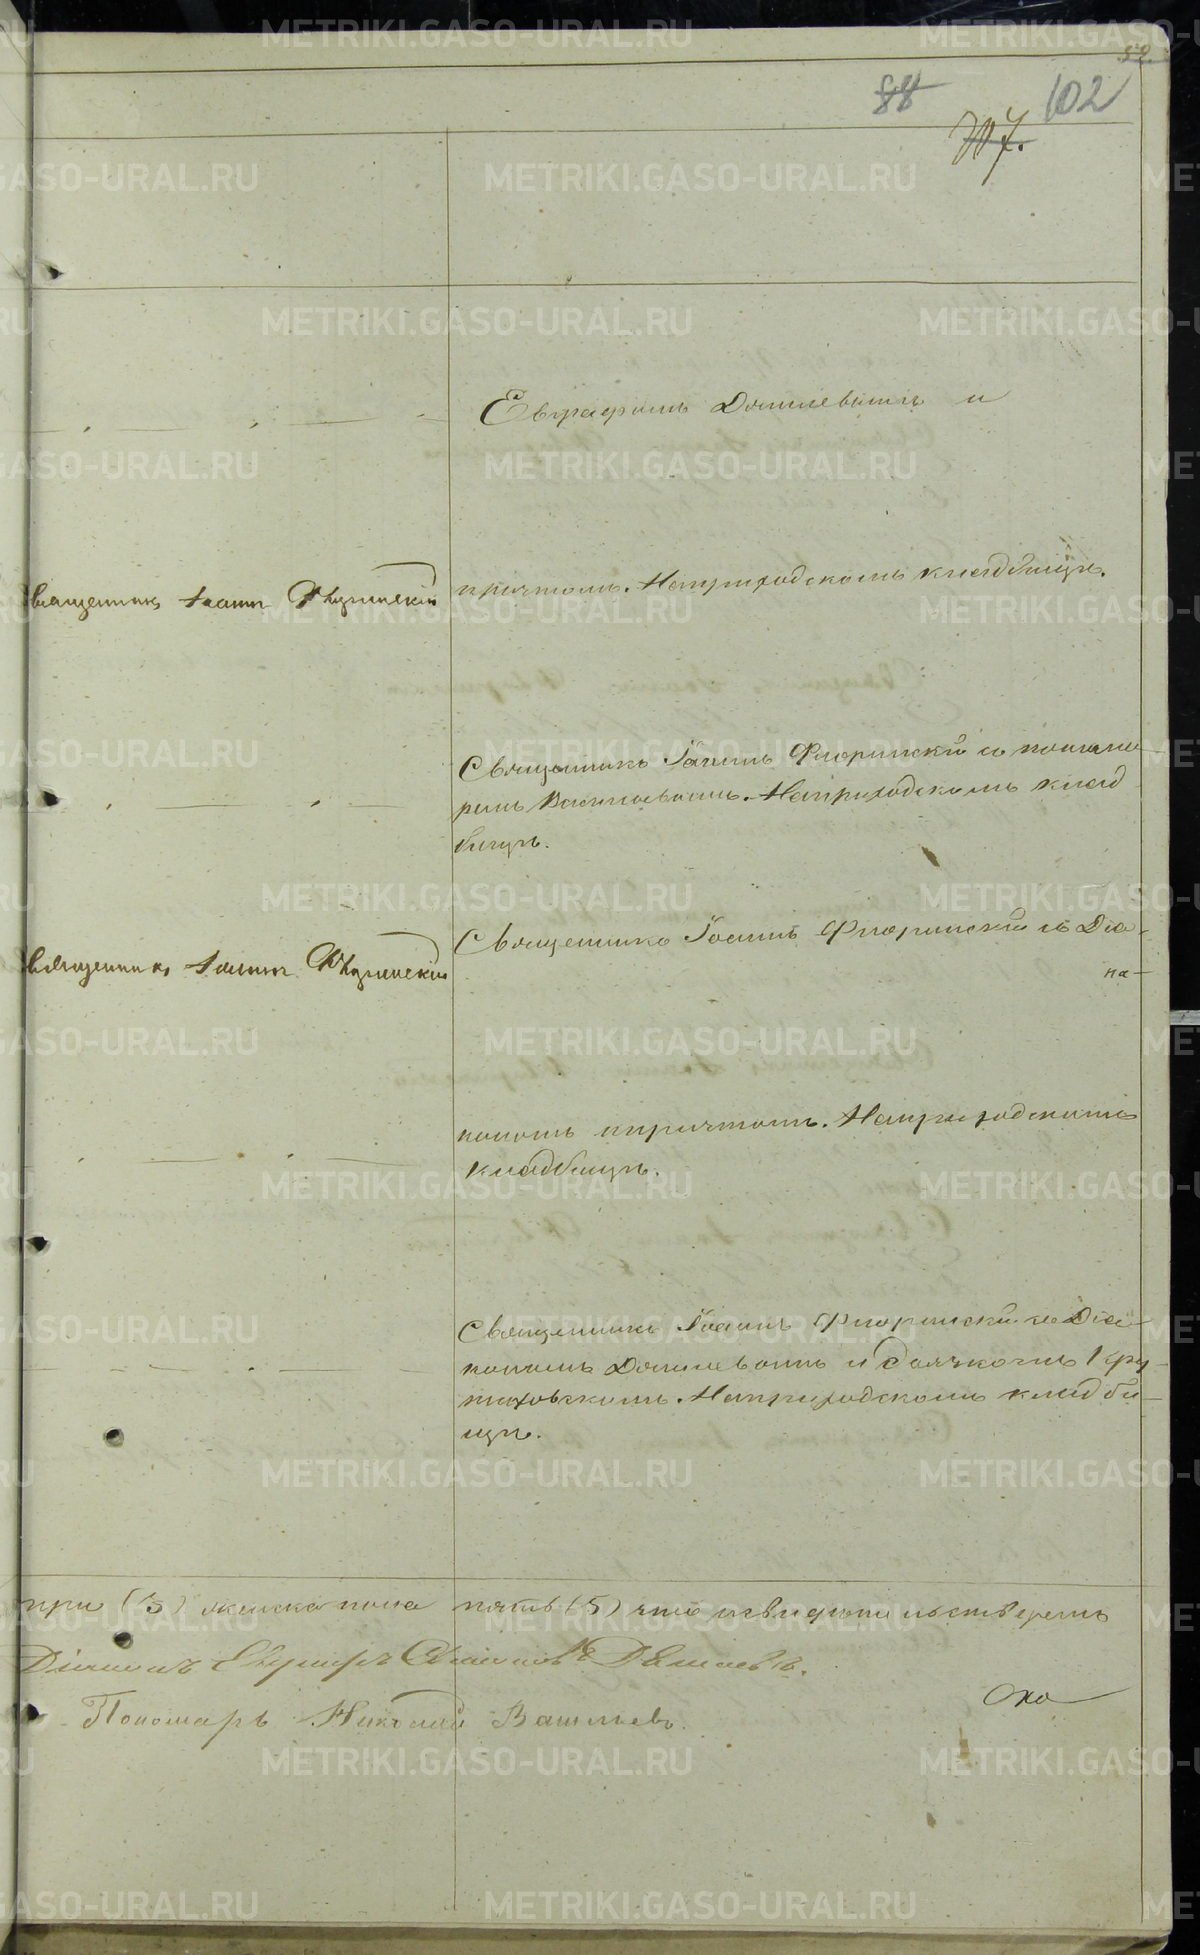 52.
88 102
Евграфомъ Домневымъ и
Священникъ Іоаннъ Флоринскій
причтомъ. На приходскомъ кладбищѣ.
Священникъ Іоаннъ Флоринскій съ понома-
ремъ Васильевымъ. На приходскомъ клад-
бищѣ.
Священникъ Іоаннъ Флоринскій
Священникъ Іоаннъ Флоринскій съ Діа-
ко-
кономъ и причтомъ. На приходскомъ
кладбищѣ.
Священникъ Іоаннъ Флоринскій съ Діа-
кономъ и дьячкомъ Кру-
тиховскимъ. На приходскомъ кладби-
щѣ.
три (3) женска пола пять (5) что и свидѣтельствуемъ
Діаконъ Евграфъ
Пономарь Николай Васильевъ.
METRIKI.GASO-URAL.RU